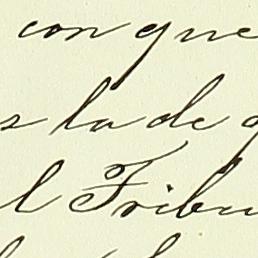 con que
s la de q
l Tribu